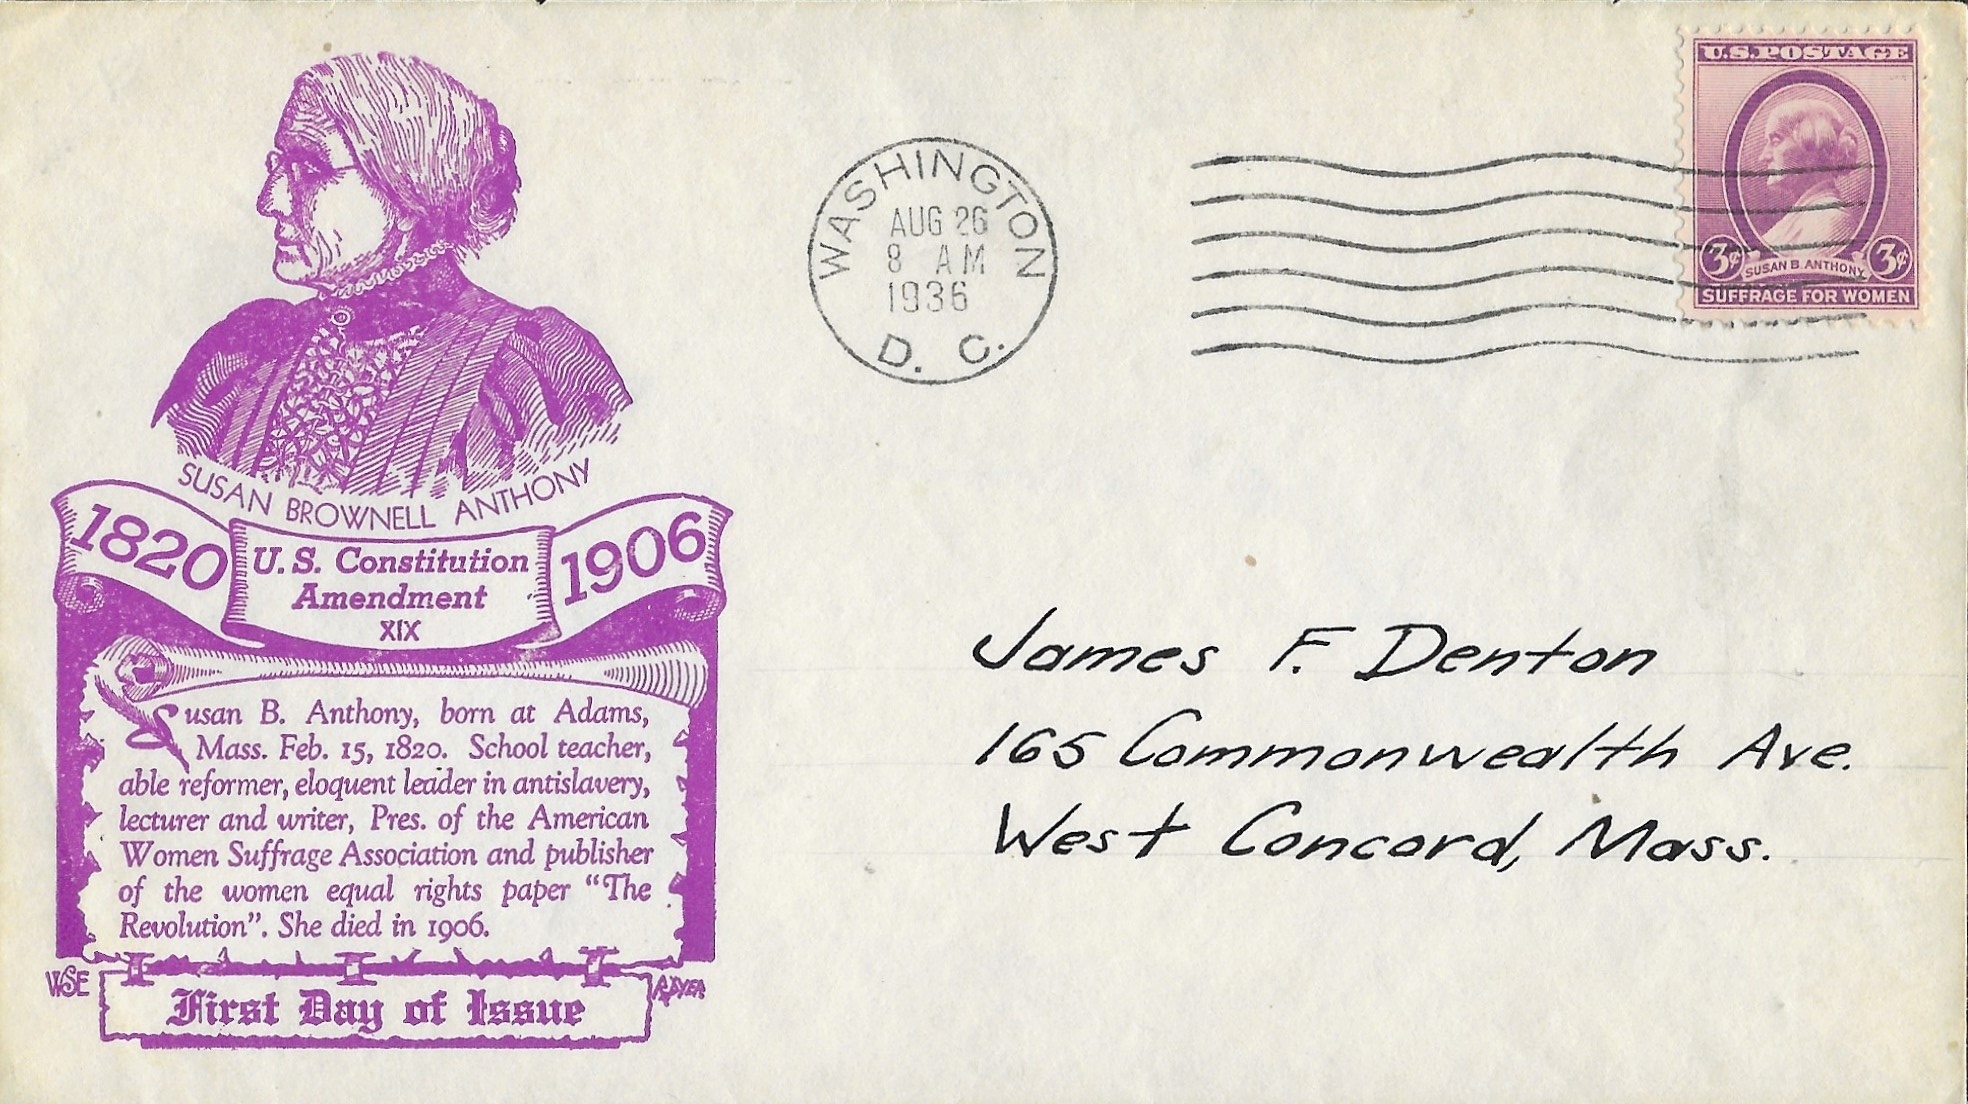 U.S. POSTAGE
3¢ SUSAN B. ANTHONY 3¢
SUFFRAGE FOR WOMEN
WASHINGTON
AUG 26
8 AM
1936
D. C.
SUSAN BROWNELL ANTHONY
1820 U.S. Constitution 1906
Amendment
XIX
Susan B. Anthony, born at Adams,
Mass. Feb. 15, 1820. School teacher,
able reformer, eloquent leader in antislavery,
lecturer and writer, Pres. of the American
Women Suffrage Association and publisher
of the women equal rights paper “The
Revolution”. She died in 1906.
WSE
First Day of Issue
James F. Denton
165 Commonwealth Ave.
West Concord, Mass.